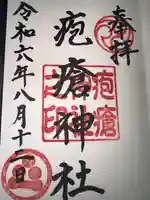 奉拝
疱瘡神社
疱瘡神社之印
令和六年八月十二日